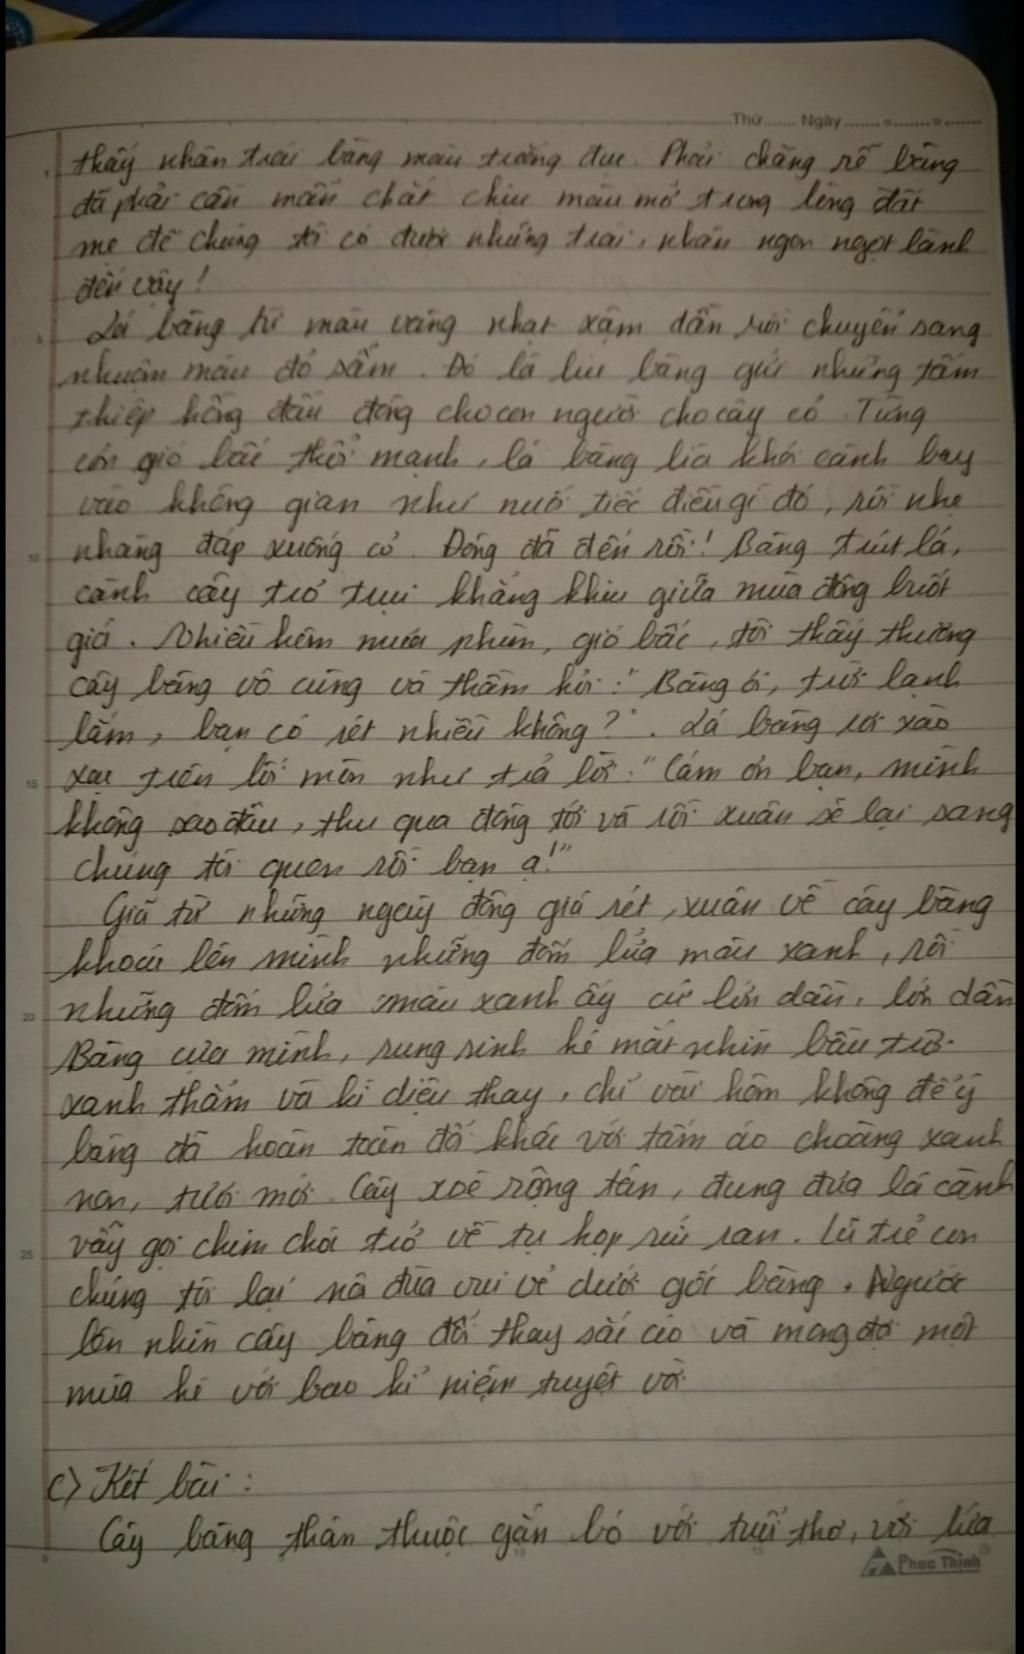 Thứ....... Ngày.......o.......o.......
thấy nhân trái bàng màu trắng đục. Phải chăng rễ bàng
đã phải cần mẫn chắt chiu màu mỡ trong lòng đất
mẹ để chúng tôi có được những trái, nhân ngon ngọt lành
đến vậy!
Lá bàng từ màu vàng nhạt xậm dần rồi chuyển sang
nhuộm màu đỏ sẫm. Đó là lúc bàng gửi những tấm
thiệp hồng đầu đông cho con người cho cây cỏ. Từng
cơn gió bấc thổi mạnh, lá bàng lìa khỏi cành bay
vào không gian như nuối tiếc điều gì đó, rồi nhẹ
nhàng đáp xuống cỏ. Đông đã đến rồi! Bàng trút lá,
cành cây trơ trụi khẳng khiu giữa mùa đông buốt
giá. Nhiều hôm mưa phùn, gió bấc, tôi thấy thương
cây bàng vô cùng và thầm hỏi: "Bàng ơi, trời lạnh
lắm, bạn có rét nhiều không?". Lá bàng rơi xào
xạc trên lối mòn như trả lời: "Cám ơn bạn, mình
không sao đâu, thu qua đông tới và rồi xuân sẽ lại sang
chúng tôi quen rồi bạn ạ!"
Giã từ những ngày đông giá rét, xuân về cây bàng
khoác lên mình những đốm lửa màu xanh, rồi
những đốm lửa màu xanh ấy cứ lớn dần, lớn dần
Bàng cựa mình, rung rinh hé mắt nhìn bầu trời
xanh thắm và kì diệu thay, chỉ vài hôm không để ý
bàng đã hoàn toàn đã khác với tấm áo choàng xanh
non, tươi mới. Cây xoè rộng tán, đung đưa lá cành
vẫy gọi chim chóc trở về tụ họp ríu ran. Lũ trẻ con
chúng tôi lại nô đùa vui vẻ dưới gốc bàng. Người
lớn nhìn cây bàng đổi thay sắc áo và mong đợi một
mùa hè với bao kỉ niệm tuyệt vời
c) Kết bài:
Cây bàng thân thuộc gắn bó với tuổi thơ, với lứa
Phuc Thinh